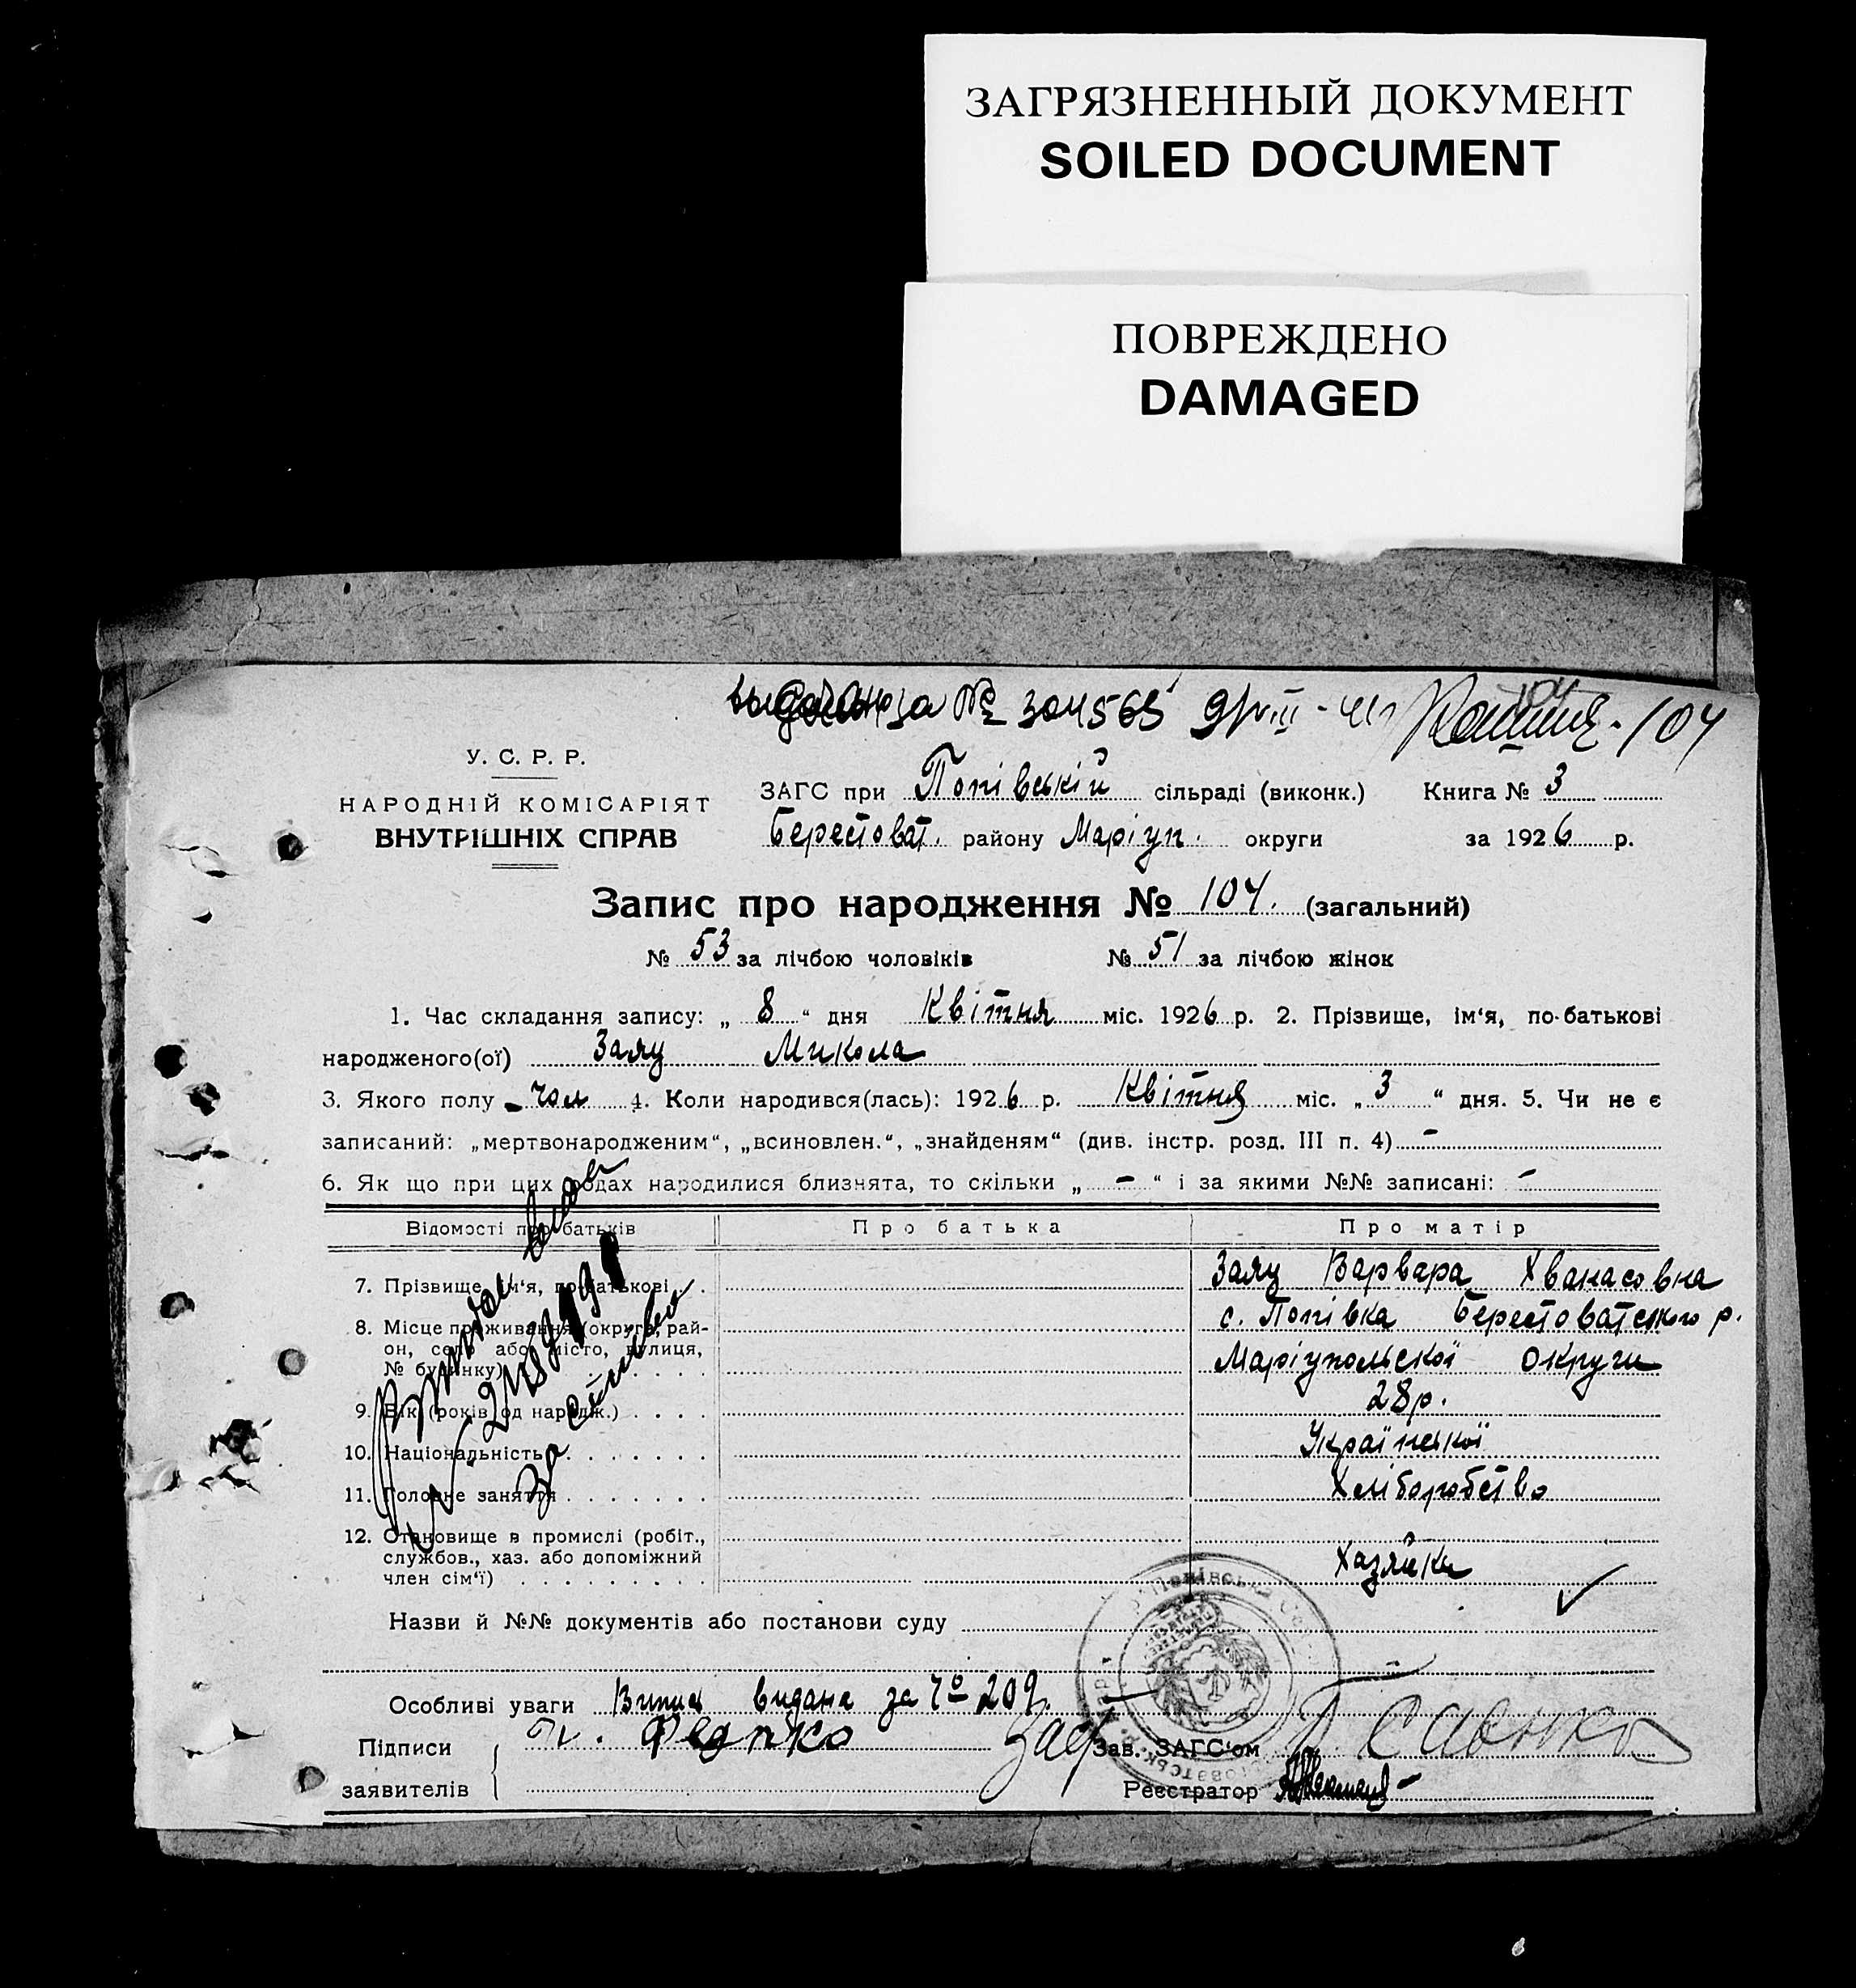 ЗАГРЯЗНЕННЫЙ ДОКУМЕНТ
SOILED DOCUMENT
ПОВРЕЖДЕНО
DAMAGED
за № 304565
104
У. С. Р. Р.
НАРОДНІЙ КОМІСАРІЯТ
ВНУТРІШНІХ СПРАВ
ЗАГС при Попівській сільраді (виконк.) Книга № 3
Берестоват. району Маріуп. округи за 1926 р.
Запис про народження № 104. (загальний)
№ 53 за лічбою чоловіків № 51 за лічбою жінок
1. Час складання запису: „ 8 “ дня Квітня міс. 1926 р. 2. Прізвище, ім‘я, по-батькові
народженого(ої) Заяц Микола
3. Якого полу чол 4. Коли народився(лась): 1926 р. Квітня міс. „ 3 “ дня. 5. Чи не є
записаний: „мертвонародженим“, „всиновлен.“, „знайденям“ (див. інстр. розд. III п. 4) -
6. Як що при цих родах народилися близнята, то скільки „ - “ і за якими №№ записані: -
Відомості про батьків Про батька Про матір
7. Прізвище, ім‘я, по батькові . . Заяц Варвара Хванасовна
8. Місце проживання (округа, рай- с. Попівка Берестоватского р.
он, село або місто, вулиця,
№ будинку) . . . . . . Маріупольскої округи
9. Вік (років од народж.) . . . . 28 р.
10. Національність . . . . . . . Української
11. Головне заняття . . . . . . . Хліборобство
12. Становище в промислі (робіт.,
службов., хаз. або допоміжний
член сім‘ї) . . . . . . . . . Хазяйка
Назви й №№ документів або постанови суду
Особливі уваги Випись видана за № 209.
Підписи Федько Зав. ЗАГС‘ом Савенко
заявителів Реєстратор